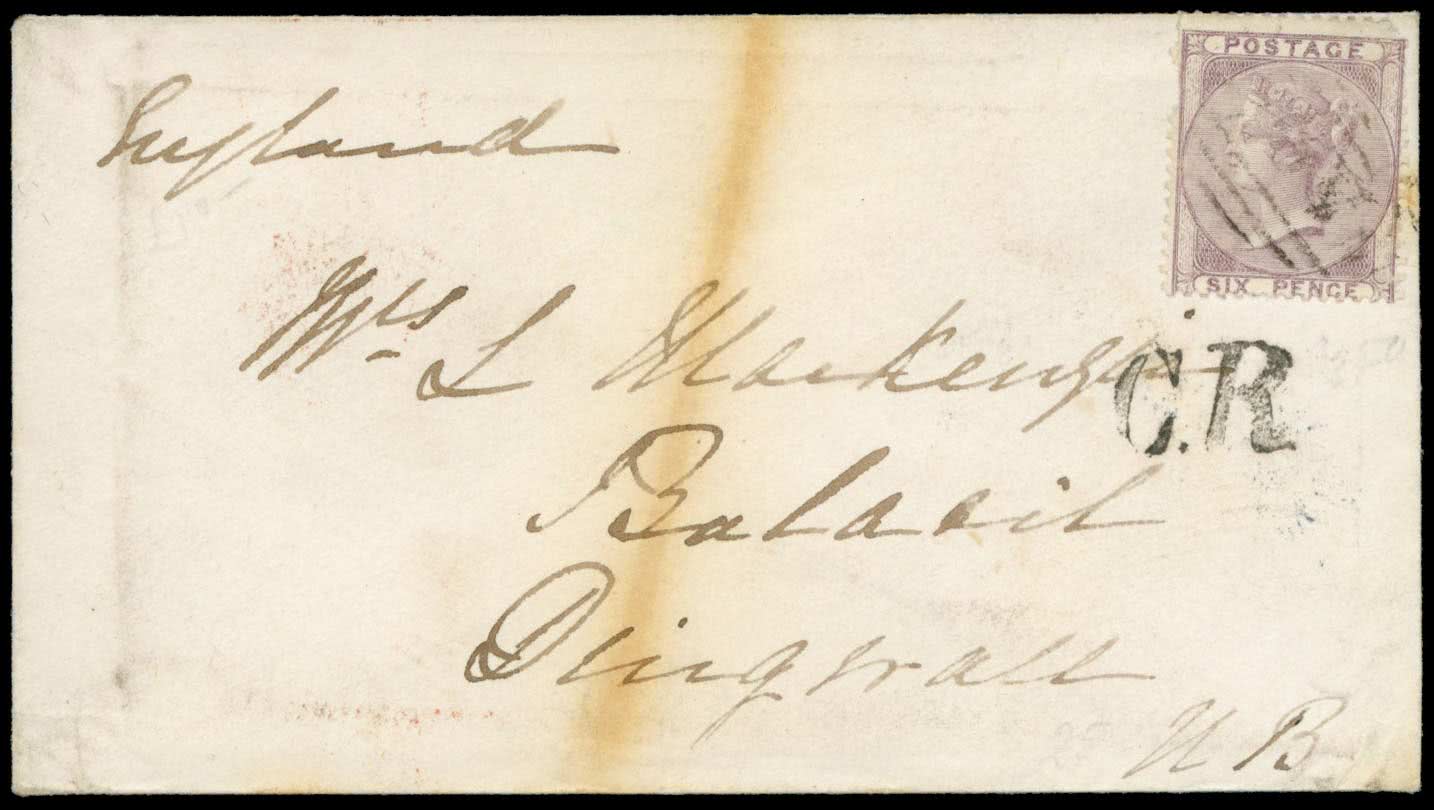 POSTAGE
SIX PENCE
England
Mrs L Mackenzie
C.R
Dingwall
N B